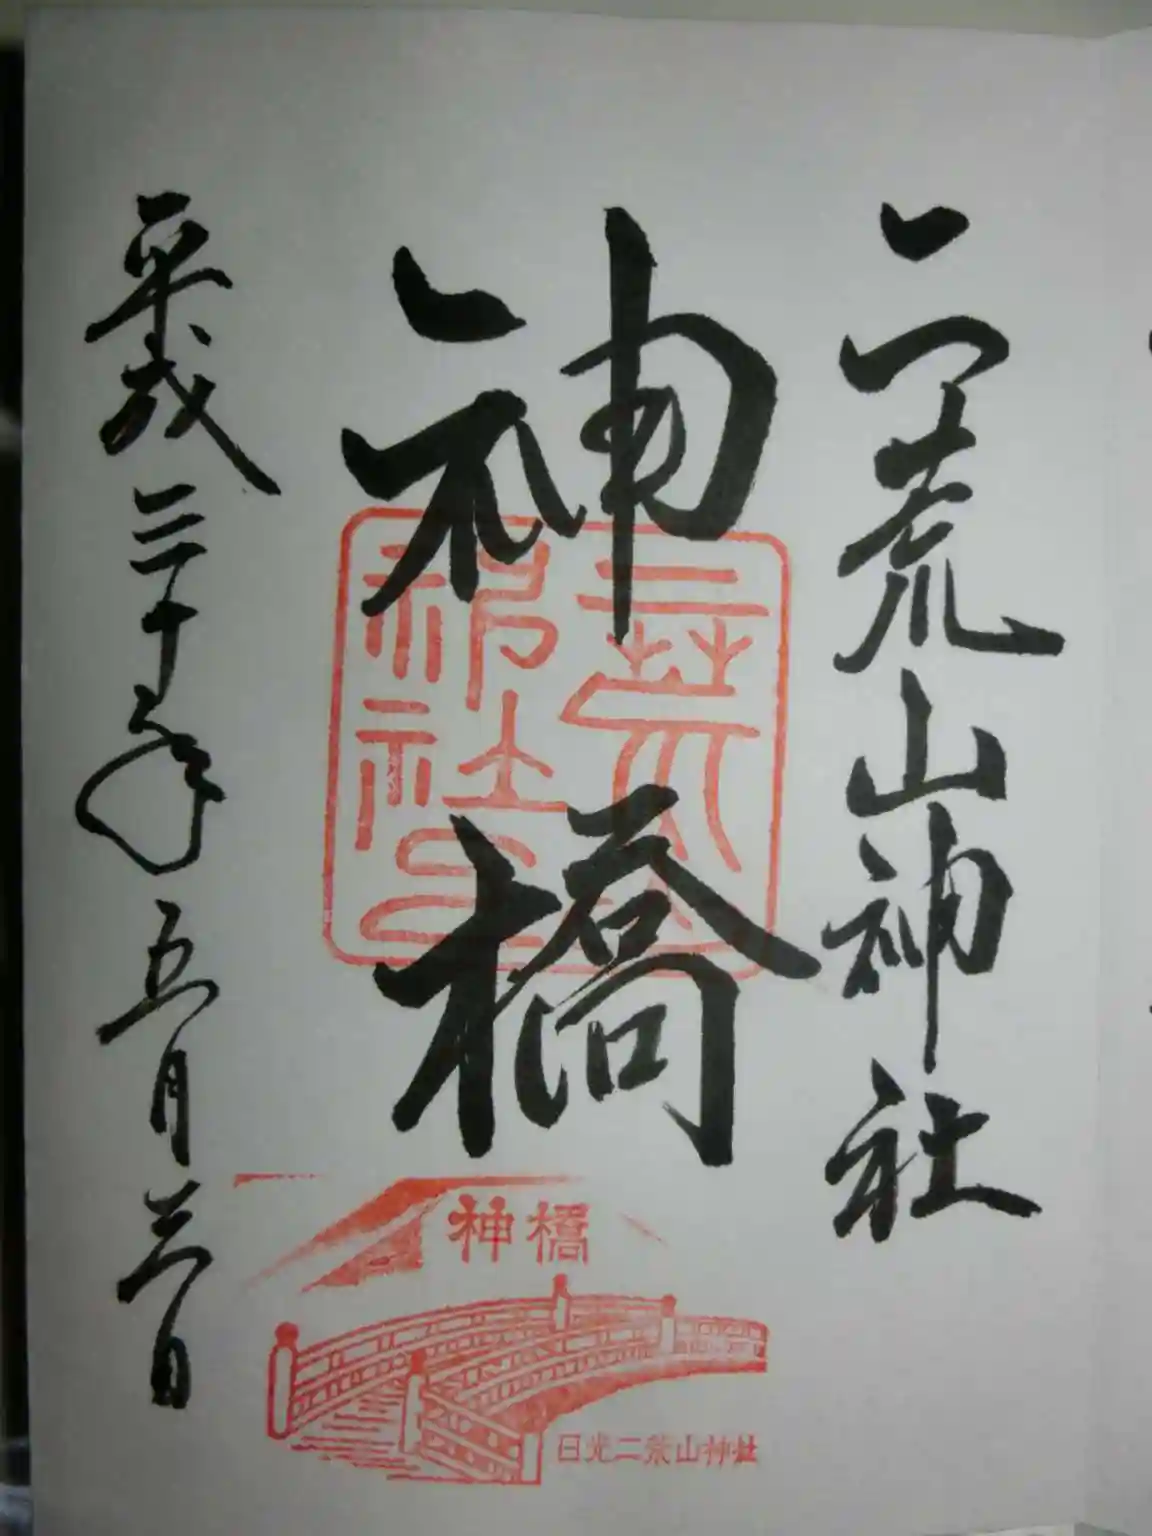 二荒山神社
神橋
平成三十年五月六日
二荒山
神社印
神橋
日光二荒山神社